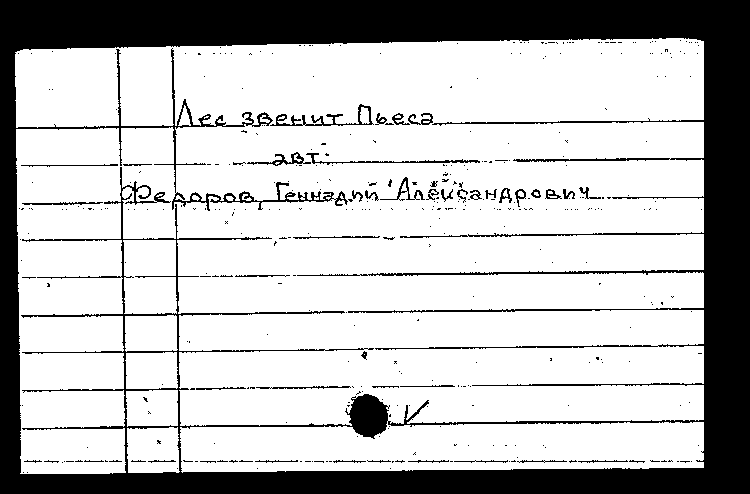 Лес звенит Пьеса
авт:
Федоров, Геннадий Александрович